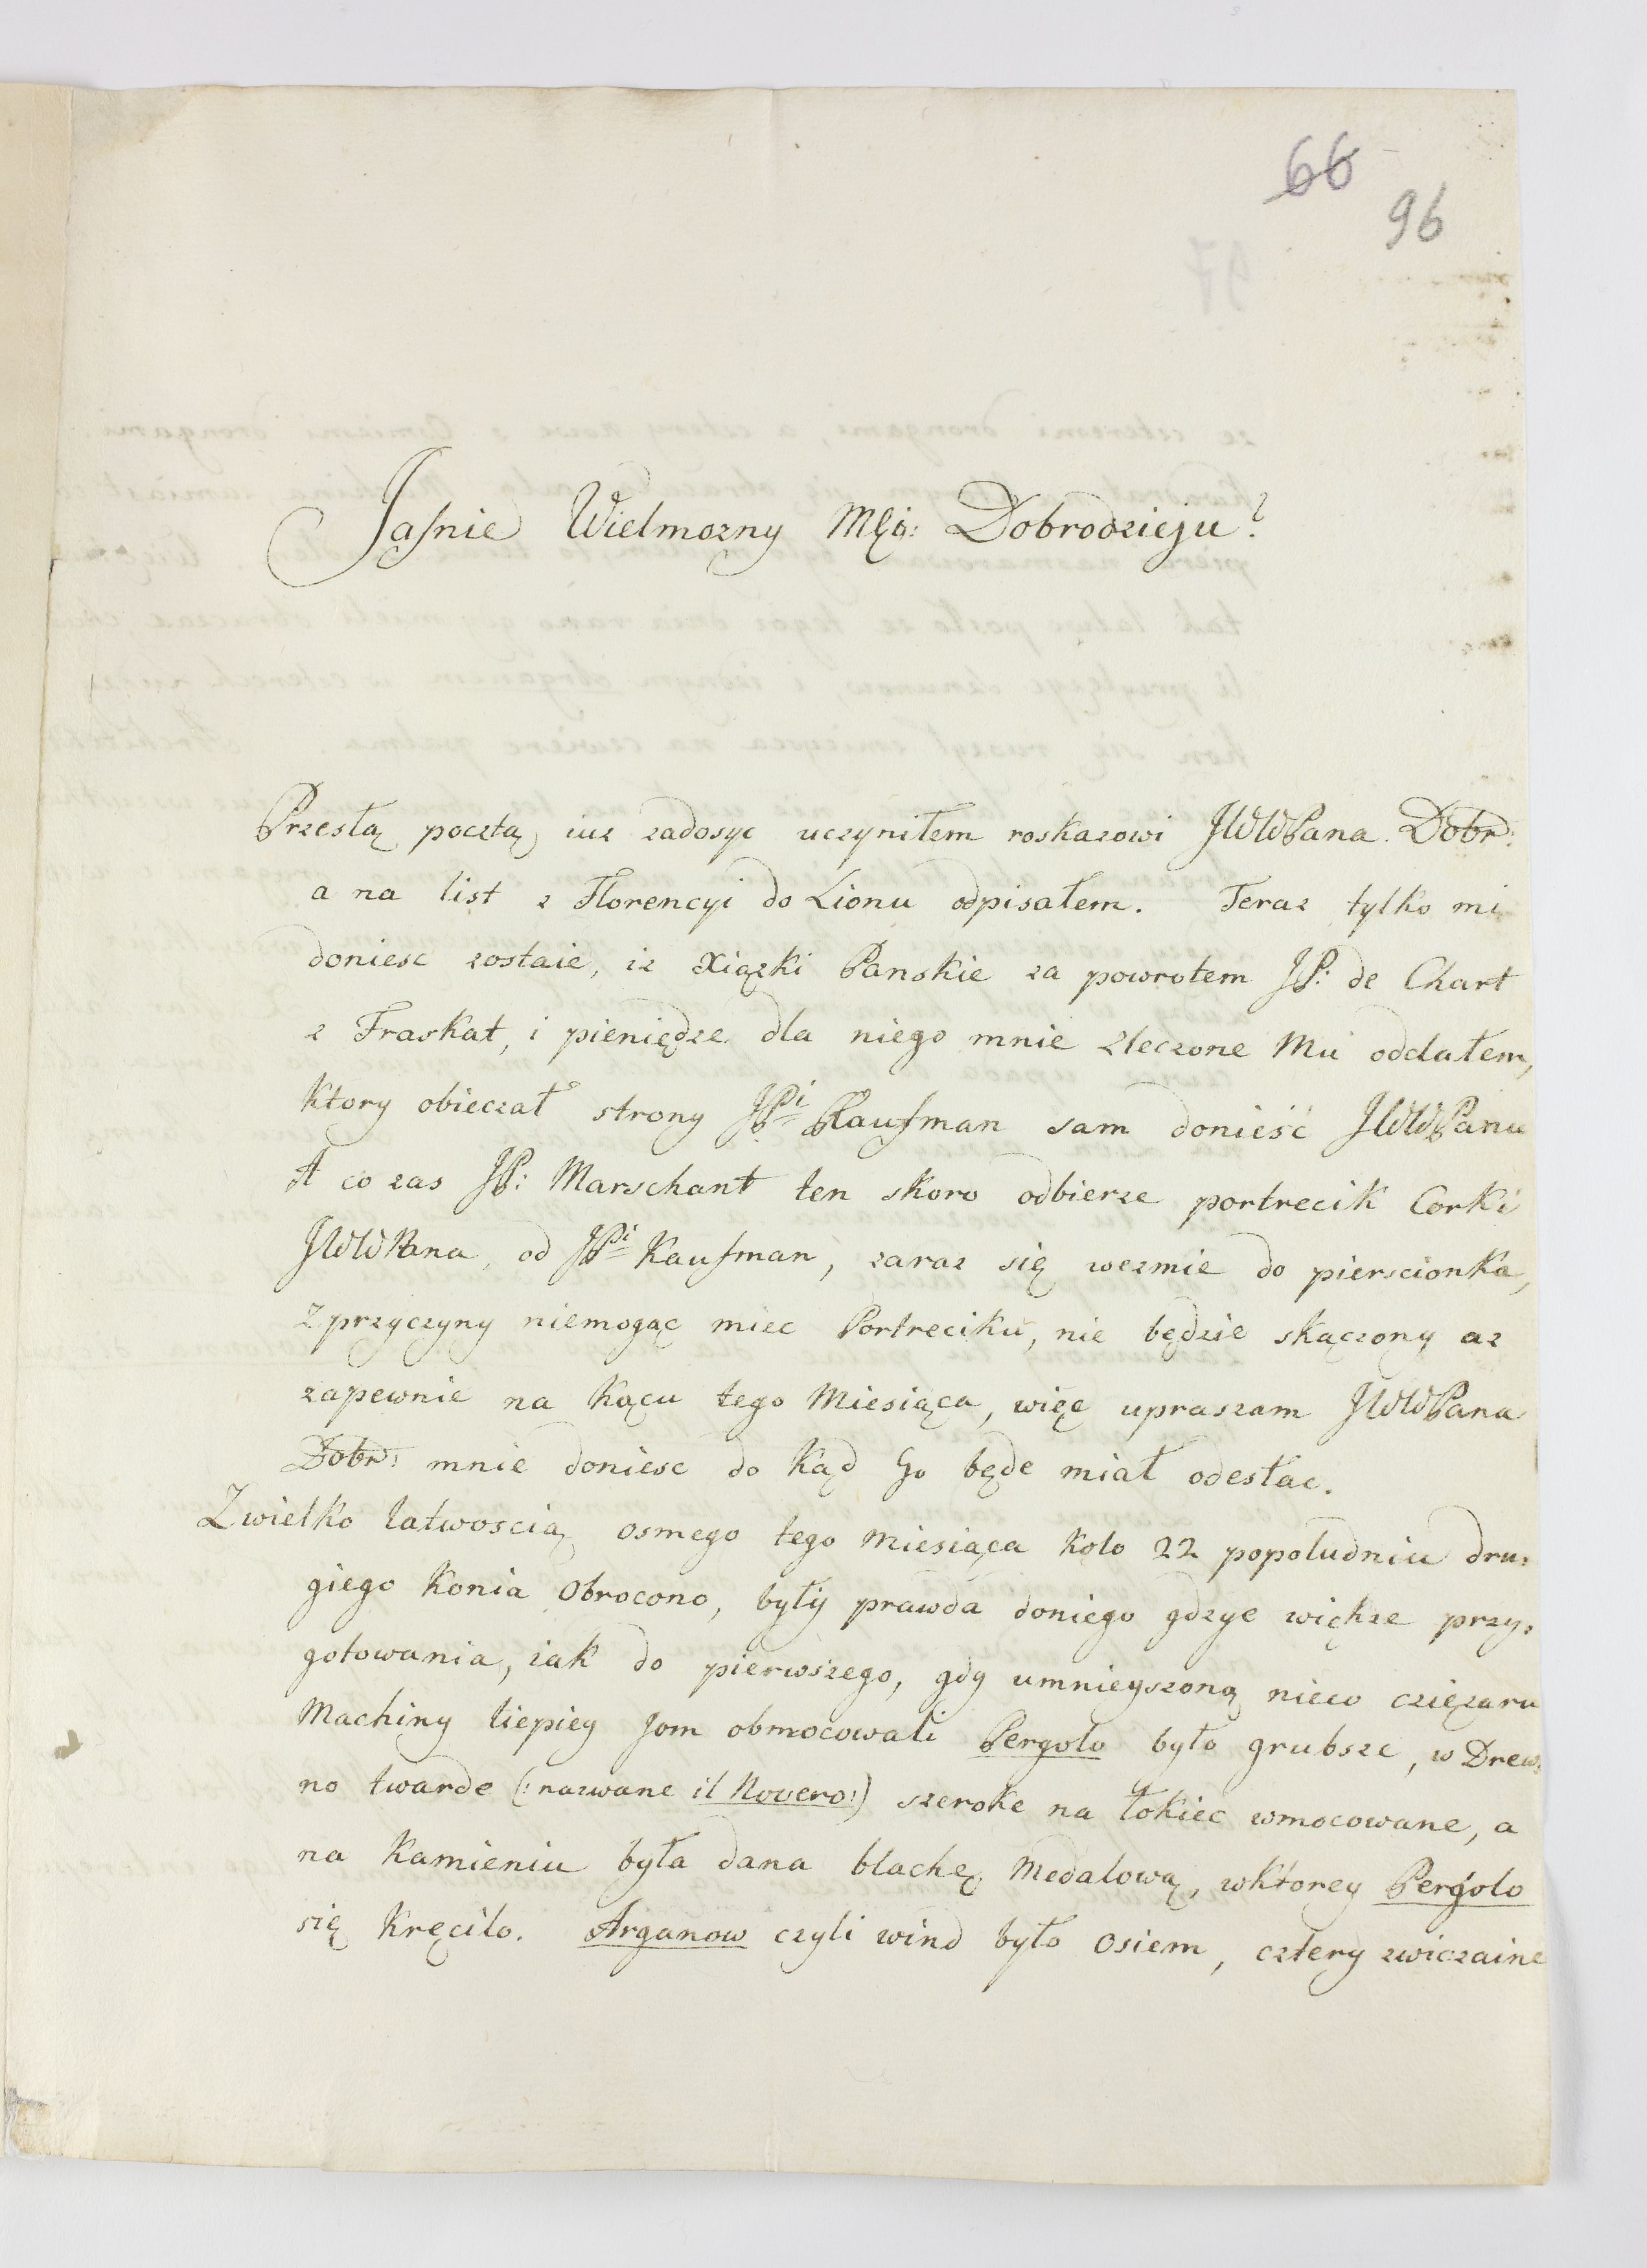 66
96
Jaſnie Wielmozny Mḉi: Dobrodzieju!
Przesłą pocztą iuz zadosyc uczyniłem roskazowi JWWPana. Dobr:
a na list z Florencyi do Lionu odpisałem. Teraz tylko mi
doniesc zostaie, iz Xiązki Panskie za powrotem JP: de Chart
z Fraskat, i pieniędze dla niego mnie zleczone Mu oddałem,
Ktory obieczał strony JPi Kaufman sam donieść JWWPanu
A co zas JP: Marschant ten skoro odbierze portrecik Corki
JWWPana, od JPi Kaufman, zaraz się wezmie do pierscionka,
z przyczyny niemogąc miec Portreciku, nie będzie skączony az
zapewnie na Kącu tego Miesiąca, więc upraszam JWWPana
Dobr: mnie doniesc do Kąd Go będe miał odesłac.
Z wielko latwoscią osmego tego Miesiąca Kolo 22 popoludniu dru:
giego Konia Obrocono, były prawda doniego gdzye większe przy:
gotowania, iak do pierwszego, gdy umnieyszoną nieco cziężaru
Machiny liepiey Jom obmocowali Pergolo było grubsze, w Drew:
no twarde (: nazwane il Rovero:) szeroke na łokiec wmocowane, a
na Kamieniu była dana blachę Medalową, wktorey Pergolo
się Kręcilo. Arganow czyli wind było osiem, cztery zwiczaine